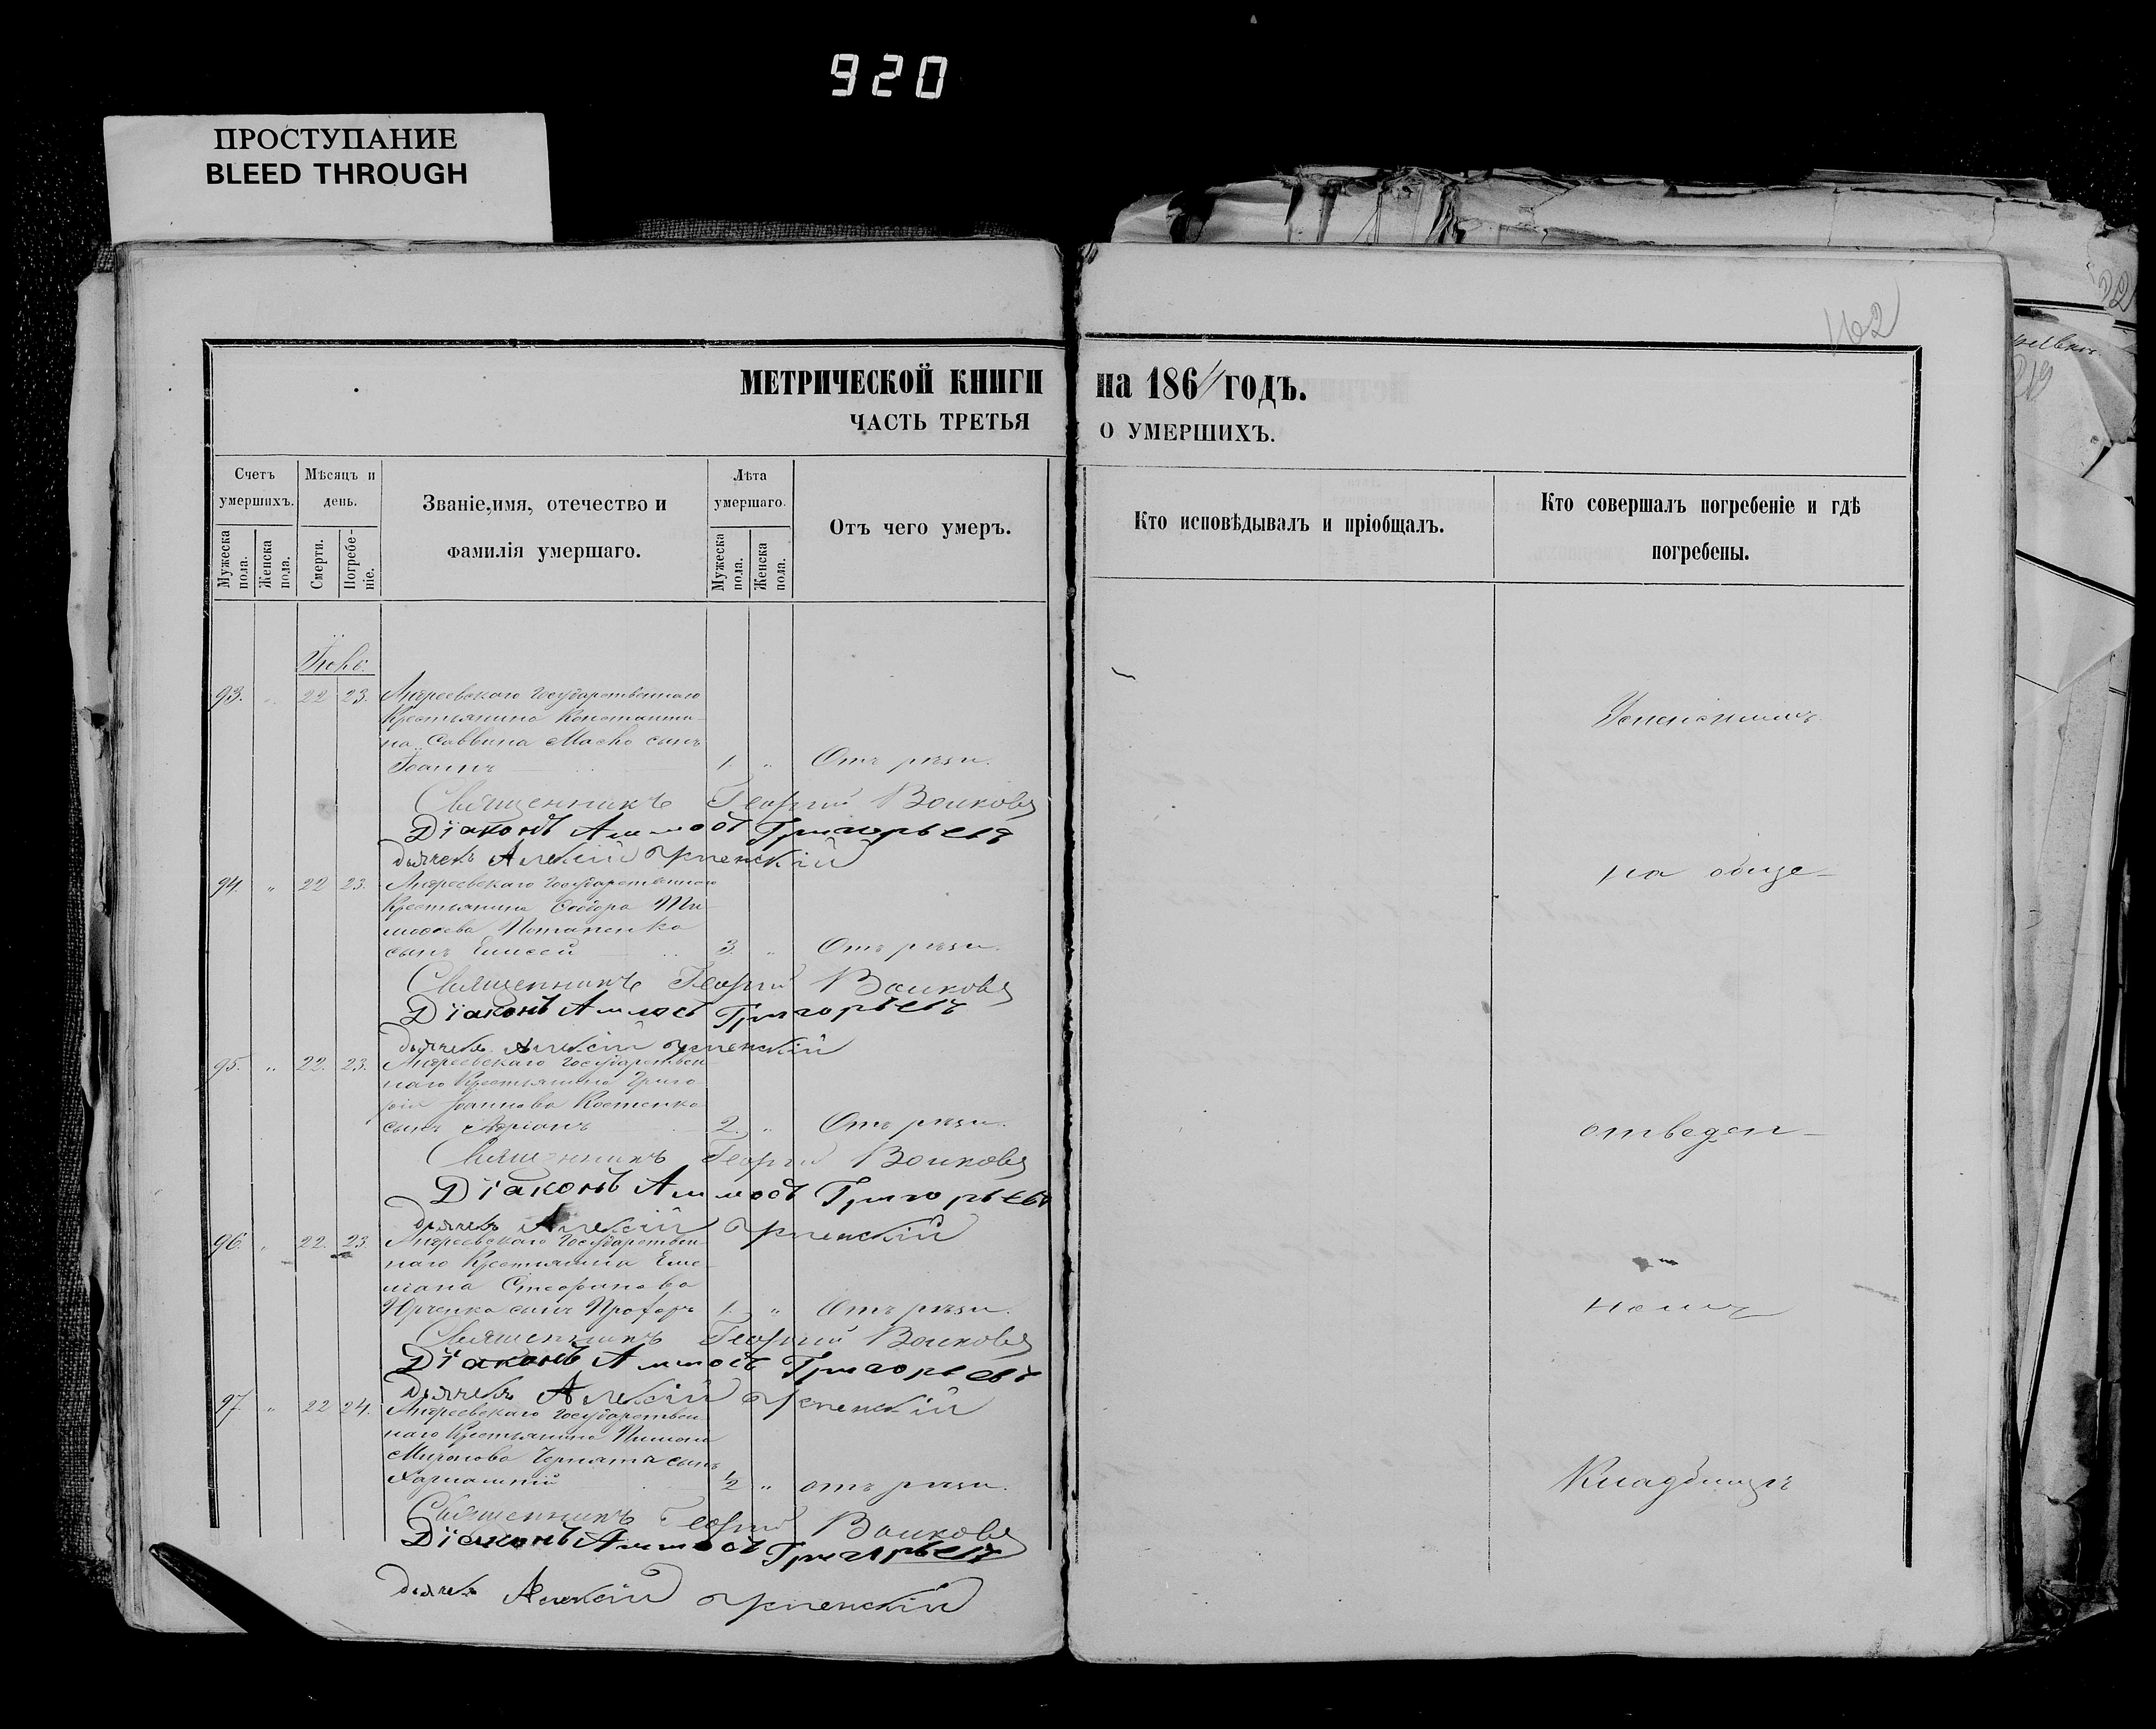 920
ПРОСТУПАНИЕ
BLEED THROUGH
162
МЕТРИЧЕСКОЙ КНИГИ на 186 годъ.
ЧАСТЬ ТРЕТЬЯ О УМЕРШИХЪ.
Счетъ умершихъ.
Мужеска пола.
Женска пола.
Мѣсяцъ и день.
Смерти.
Погребе-ніе.
Званіе, имя, отечество и
фамилія умершаго.
Лѣта умершаго.
Мужеска пола.
Женска пола.
Отъ чего умеръ.
Кто исповѣдывалъ и пріобщалъ.
Кто совершалъ погребеніе и гдѣ
погребены.
93. " 22 23. Андреевскаго Государственнаго
Крестьянина Константи-
на Саввина сынъ
Іоаннъ 1. " Отъ рѣзи.
Священникъ Георгій Волковъ
Діаконъ Аммосъ Григорьевъ
Дьячекъ Алексій Успенскій
94. " 22 23. Андреевскаго Государственнаго
Крестьянина Ѳеодора Ти-
моѳеева Потапенка
сынъ Елисей 3. " Отъ рѣзи.
Священникъ Георгій Волковъ
Діаконъ Аммосъ Григорьевъ
Дьячекъ Алексій Успенскій
95. " 22. 23. Андреевскаго Государствен-
наго Крестьянина Григо-
рія Іоаннова Костенка
сынъ Адріанъ 2. " Отъ рѣзи.
Священникъ Георгій Волковъ
Діаконъ Аммосъ Григорьевъ
Дьячекъ Алексій Успенскій
96. " 22. 23. Андреевскаго Государствен-
наго Крестьянина Еме-
ліана Стефанова
Юрченка сынъ Прохоръ 1. " Отъ рѣзи.
Священникъ Георгій Волковъ
Діаконъ Аммосъ Григорьевъ
Дьячекъ Алексій Успенскій
97. " 22 24. Андреевскаго Государствен-
наго Крестьянина
Миронова сынъ
Харлампій 1/2 " отъ рѣзи.
Священникъ Георгій Волковъ
Діаконъ Аммосъ Григорьевъ
Дьячекъ Алексій Успенскій
на обще-
отведен-
номъ
Кладбищѣ